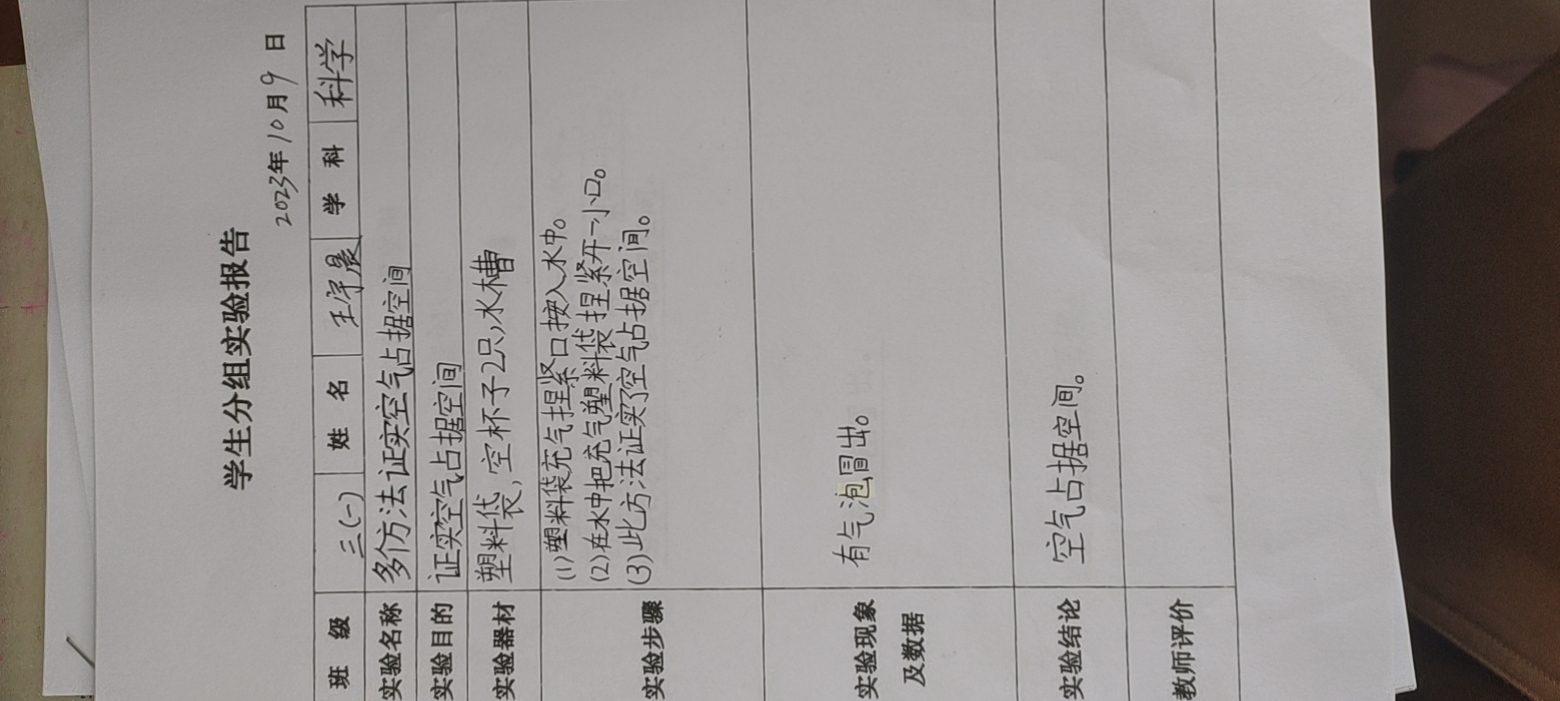 学生分组实验报告
2023年10月9日
班 级 三(一) 姓 名 王宇晨 学 科 科学
实验名称 多个方法证实空气占据空间
实验目的 证实空气占据空间
实验器材 塑料袋,空杯子2只,水槽
实验步骤
(1)塑料袋充气捏紧口按入水中。
(2)在水中把充气塑料袋捏紧开一小口。
(3)此方法证实了空气占据空间。
实验现象
及数据
有气泡冒出。
实验结论 空气占据空间。
教师评价